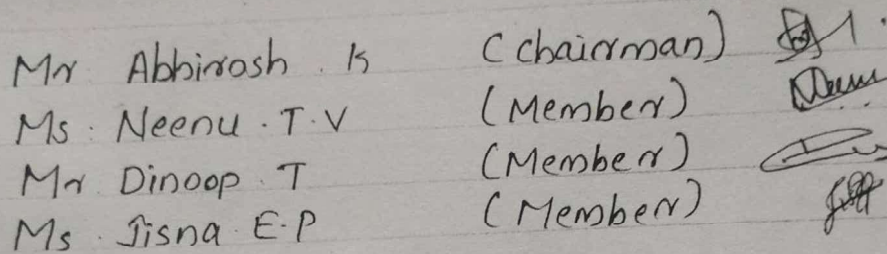 Mr Abhirosh . K (Chairman)
Ms . Neenu . T . V (Member)
Mr Dinoop . T (Member)
Ms . Jisna . E . P (Member)